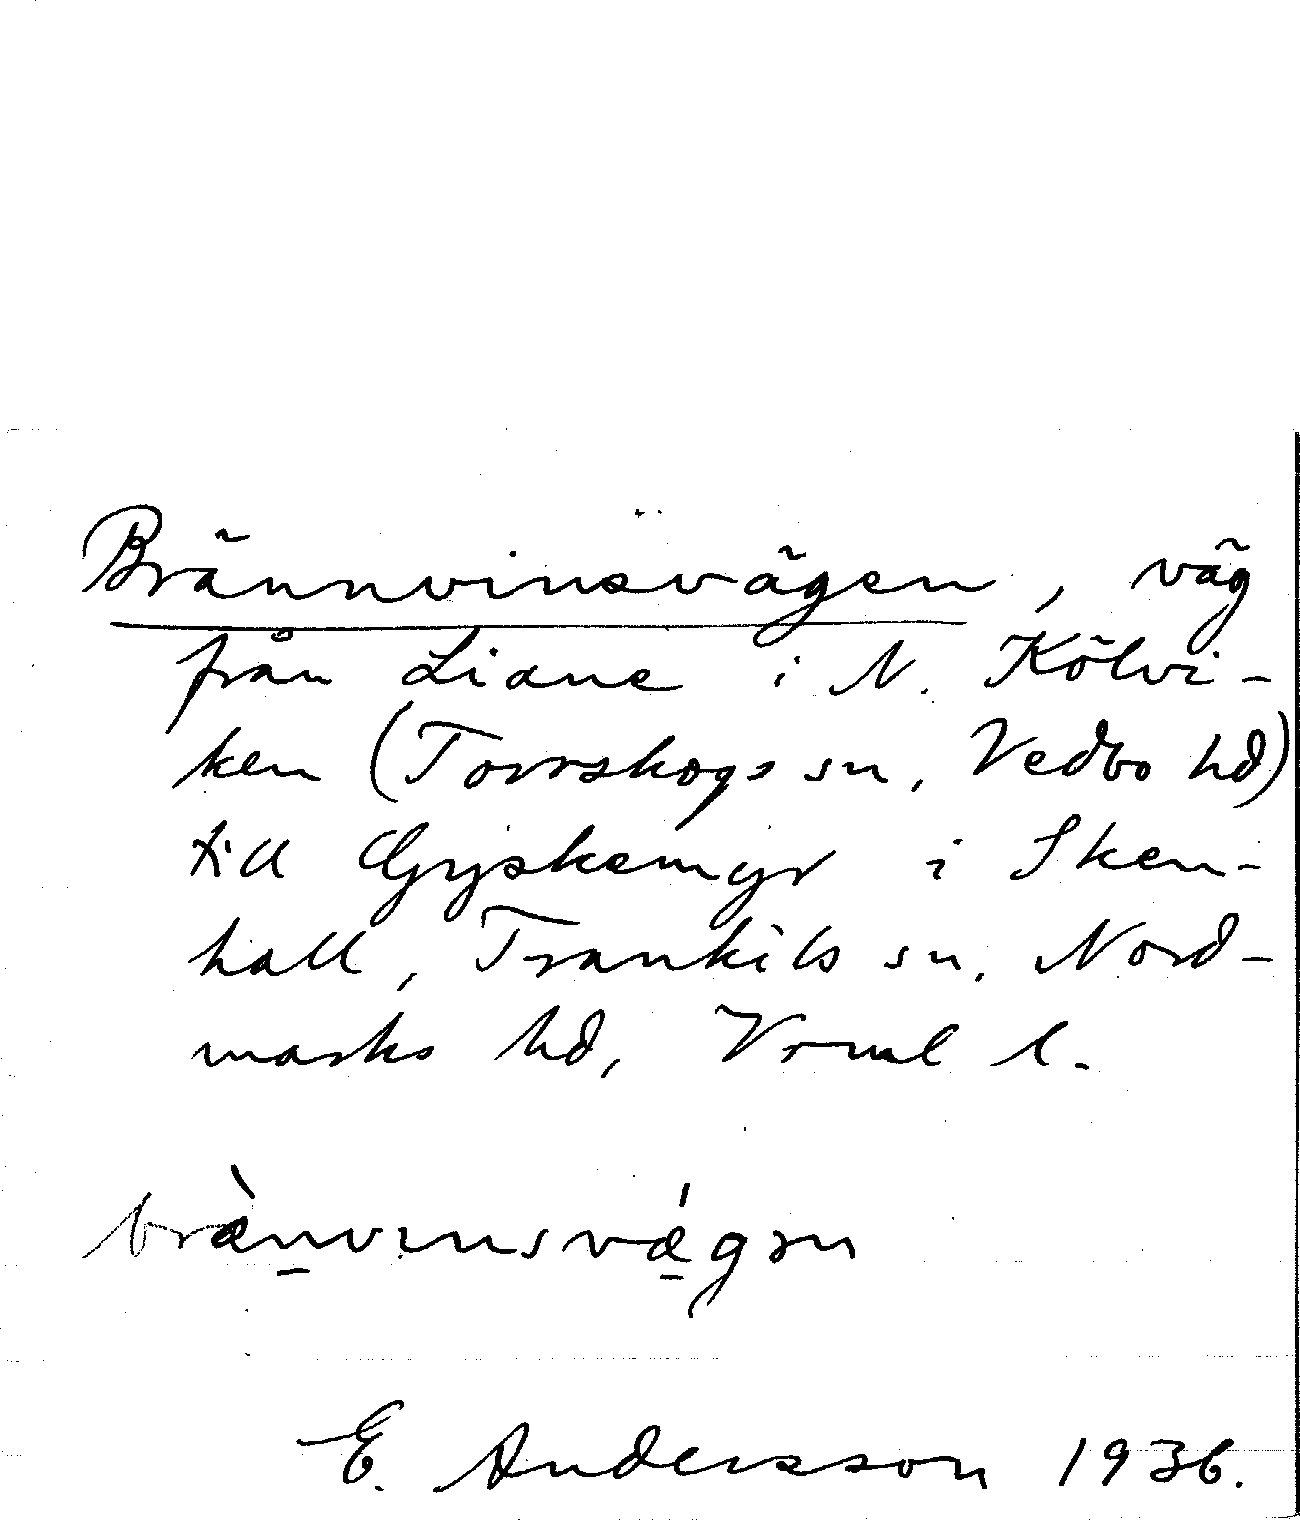 Brännvinsvägen, väg
från Liane i N. Kölvi-
ken (Torrskogs sn, Vedbo hd)
till Gryskemyr i Sken-
hall, Trankils sn, Nord-
marks hd, Vrml l.
bræ̀nvinsvǽgən
E. Andersson 1936.